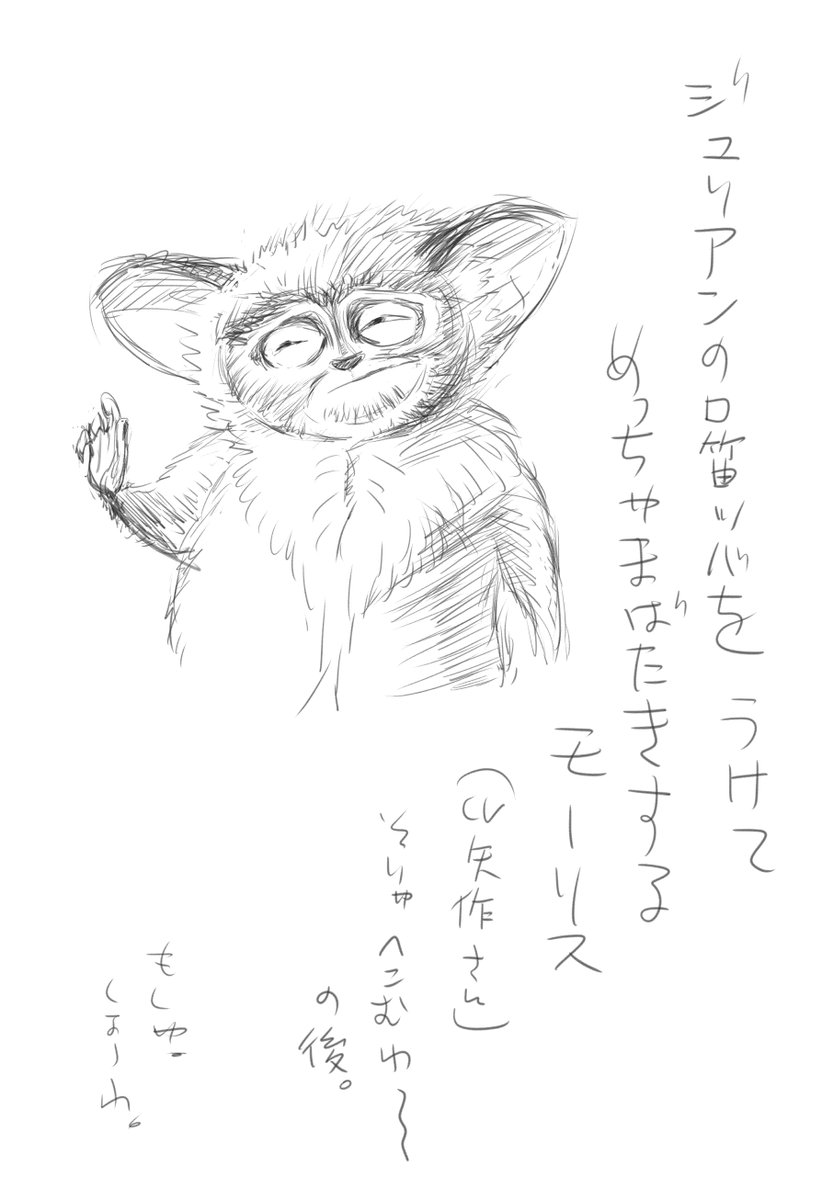 ジュリアンの口笛ツバを うけて
めっちゃまばたきする
モーリス
(CV矢作さん)
そりゃ へこむわ〜
の後。
もしゅ